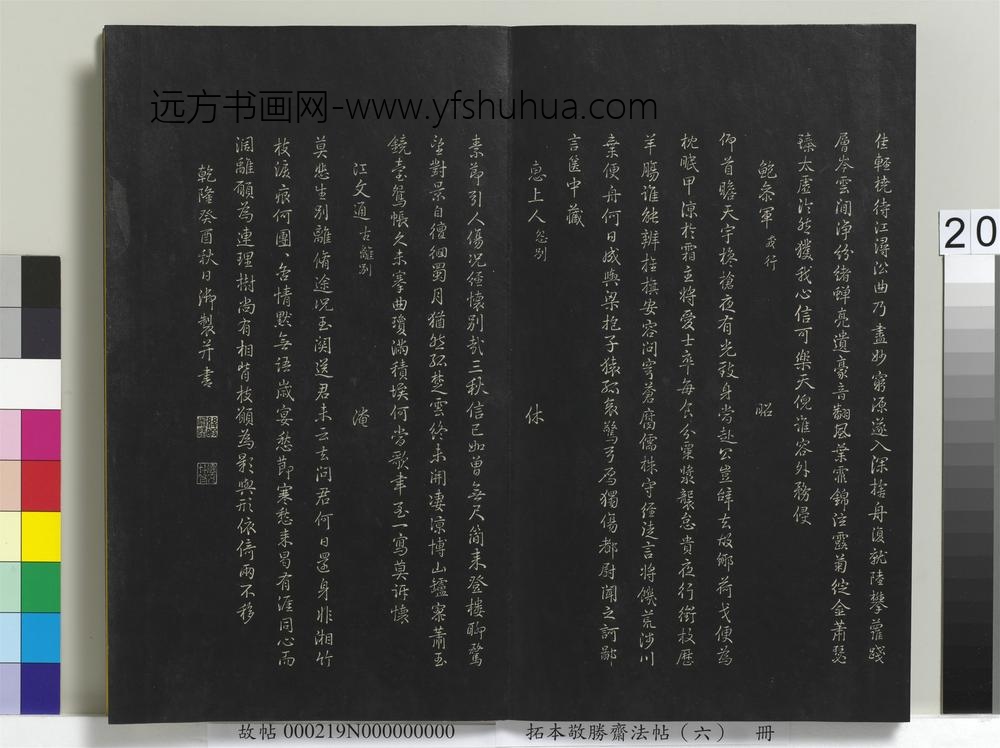 远方书画网-www.yfshuhua.com
輕桡待江潯沿曲乃盡妙窮源遂入深捨舟復就陸攀蘿踐
層岑雲澗净紛緒蟬亮遺豪音翻風葉乖錦注露菊綻金蕭瑟
臻太虚泠然獲我心信可樂天倪誰容外務侵
鮑參軍 戎行 昭
仰首瞻天宇槍夜有光致身嘗赴公豈辭去故鄉荷戈便為
枕眠甲涼於霜主將愛士卒每食分棗漿襲怠貴夜行銜枚歷
羊腸誰能辨枉横安容問穹蒼腐儒株守經徒言將饑荒涉川
棄便舟何日成輿梁抱子猿孤哀驚弓雁獨傷都尉聞之訶鄙
言匱中藏
惠上人 怨别 休
素節引人傷况經懷别哉三秋信已如曾無尺簡来登樓聊騖
望對景自徊蜀月猶然孤楚雲終未開凄涼博山爐寂蕭玉
鏡臺鴛帳久未搴曲瓊滿積埃何當歌車至一寫莫訴懷
江文通 古離别 淹
莫悲生别離脩途况玉関送君未云去問君何日還身非湘竹
枝淚痕何團、含情默無語歲宴愁節寒愁来曷有涯同心而
濶離願為連理樹尚有相背枝願為影與形依倚兩不移
乾隆癸酉秋日御製并書
20
故帖 000219N000000000 拓本敬勝齋法帖（六） 冊